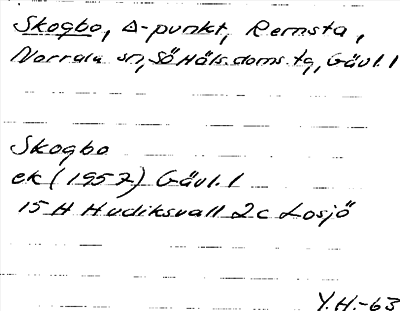 Skogbo, Δ-punkt, Remsta,
Norrala sn, Sö Häls. doms. tg, Gävl. l
Skogbo
ek (1957) Gävl. l
15 H Hudiksvall 2c Losjö
Y.H.-63